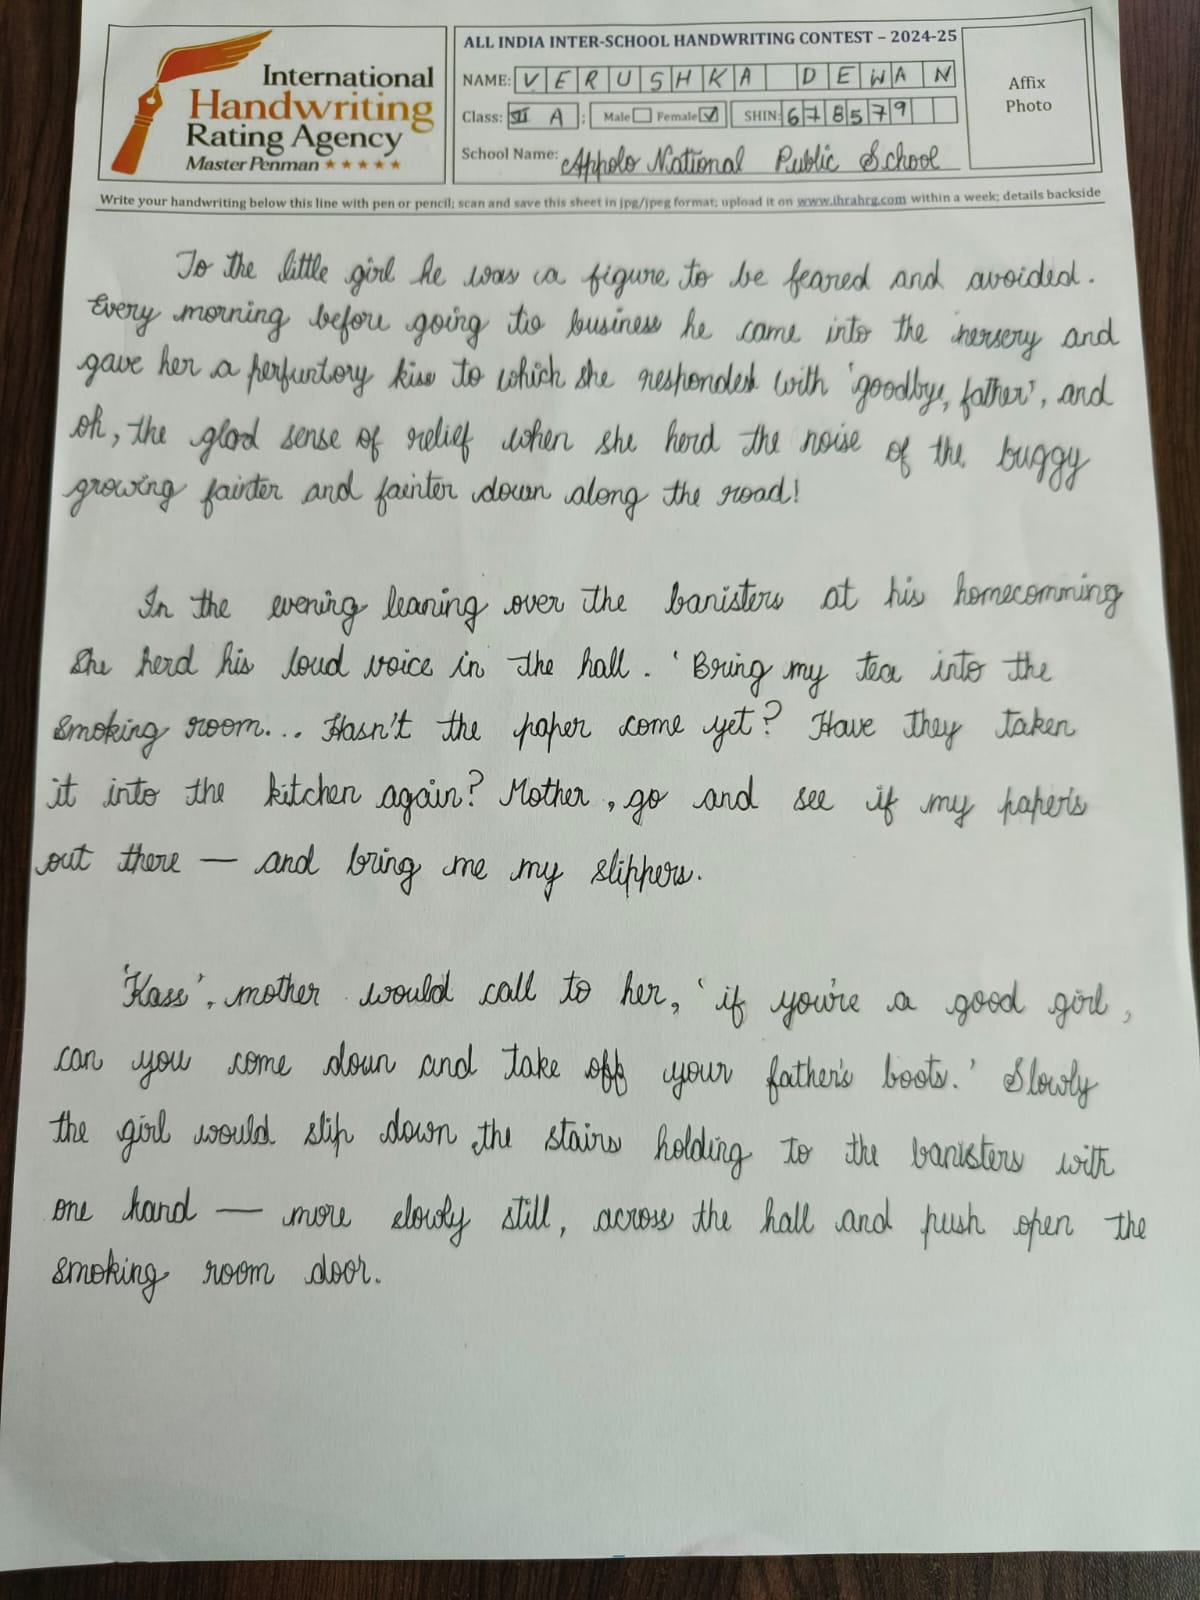 International
Handwriting
Rating Agency
Master Penman ★★★★★
ALL INDIA INTER-SCHOOL HANDWRITING CONTEST – 2024-25
NAME: VERUSHKA DEWAN
Class: A ; Male Female ✓ SHIN: 678579
School Name: Appolo National Public School
Affix
Photo
Write your handwriting below this line with pen or pencil; scan and save this sheet in jpg/jpeg format; upload it on www.ihrahrg.com within a week; details backside
To the little girl he was a figure to be feared and avoided.
Every morning before going to business he came into the nersery and
gave her a perfuntory kiss to which she responded with 'goodbye, father', and
oh, the glad sense of relief when she herd the noise of the buggy
growing fainter and fainter down along the road!
In the evening leaning over the banisters at his homecomming
She herd his loud voice in the hall. 'Bring my tea into the
smoking room... Hasn't the paper come yet? Have they taken
it into the kitchen again? Mother, go and see if my paper's
out there — and bring me my slippers.
'Kass', mother would call to her, 'if you're a good girl,
can you come down and take off your father's boots.' Slowly
the girl would slip down the stairs holding to the banisters with
one hand — more slowly still, across the hall and push open the
smoking room door.